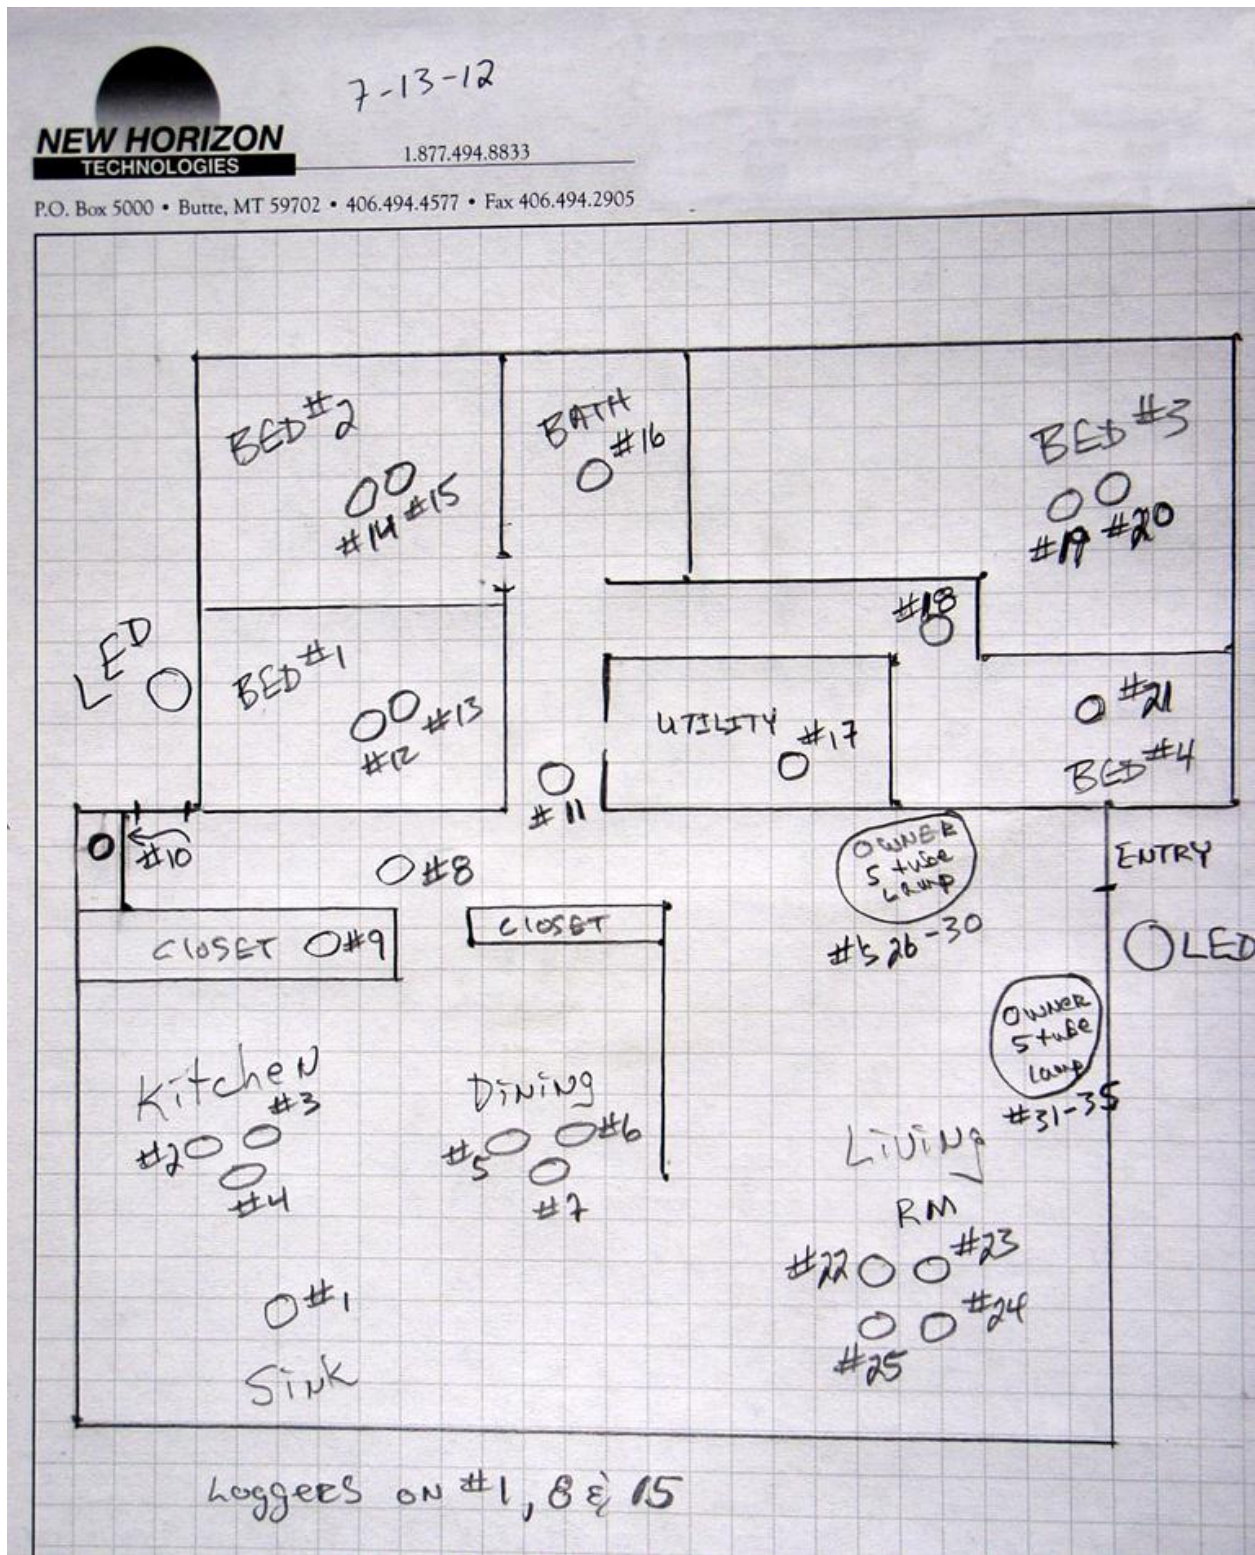 7-13-12
NEW HORIZON
TECHNOLOGIES
1.877.494.8833
P.O. Box 5000 • Butte, MT 59702 • 406.494.4577 • Fax 406.494.2905
BED #2
#14 #15
BATH
#16
BED #3
#19 #20
#18
LED
BED #1
#12 #13
#11
UTILITY
#17
#21
BED #4
#10
#8
CLOSET #9
CLOSET
OWNER
5 tube
Lamp
#'s 26-30
ENTRY
LED
OWNER
5 tube
Lamp
#31-35
Kitchen
#3
#2
#4
Dining
#5 #6
#7
Living
RM
#22 #23
#24
#25
#1
Sink
Loggers on #1, 8 & 15